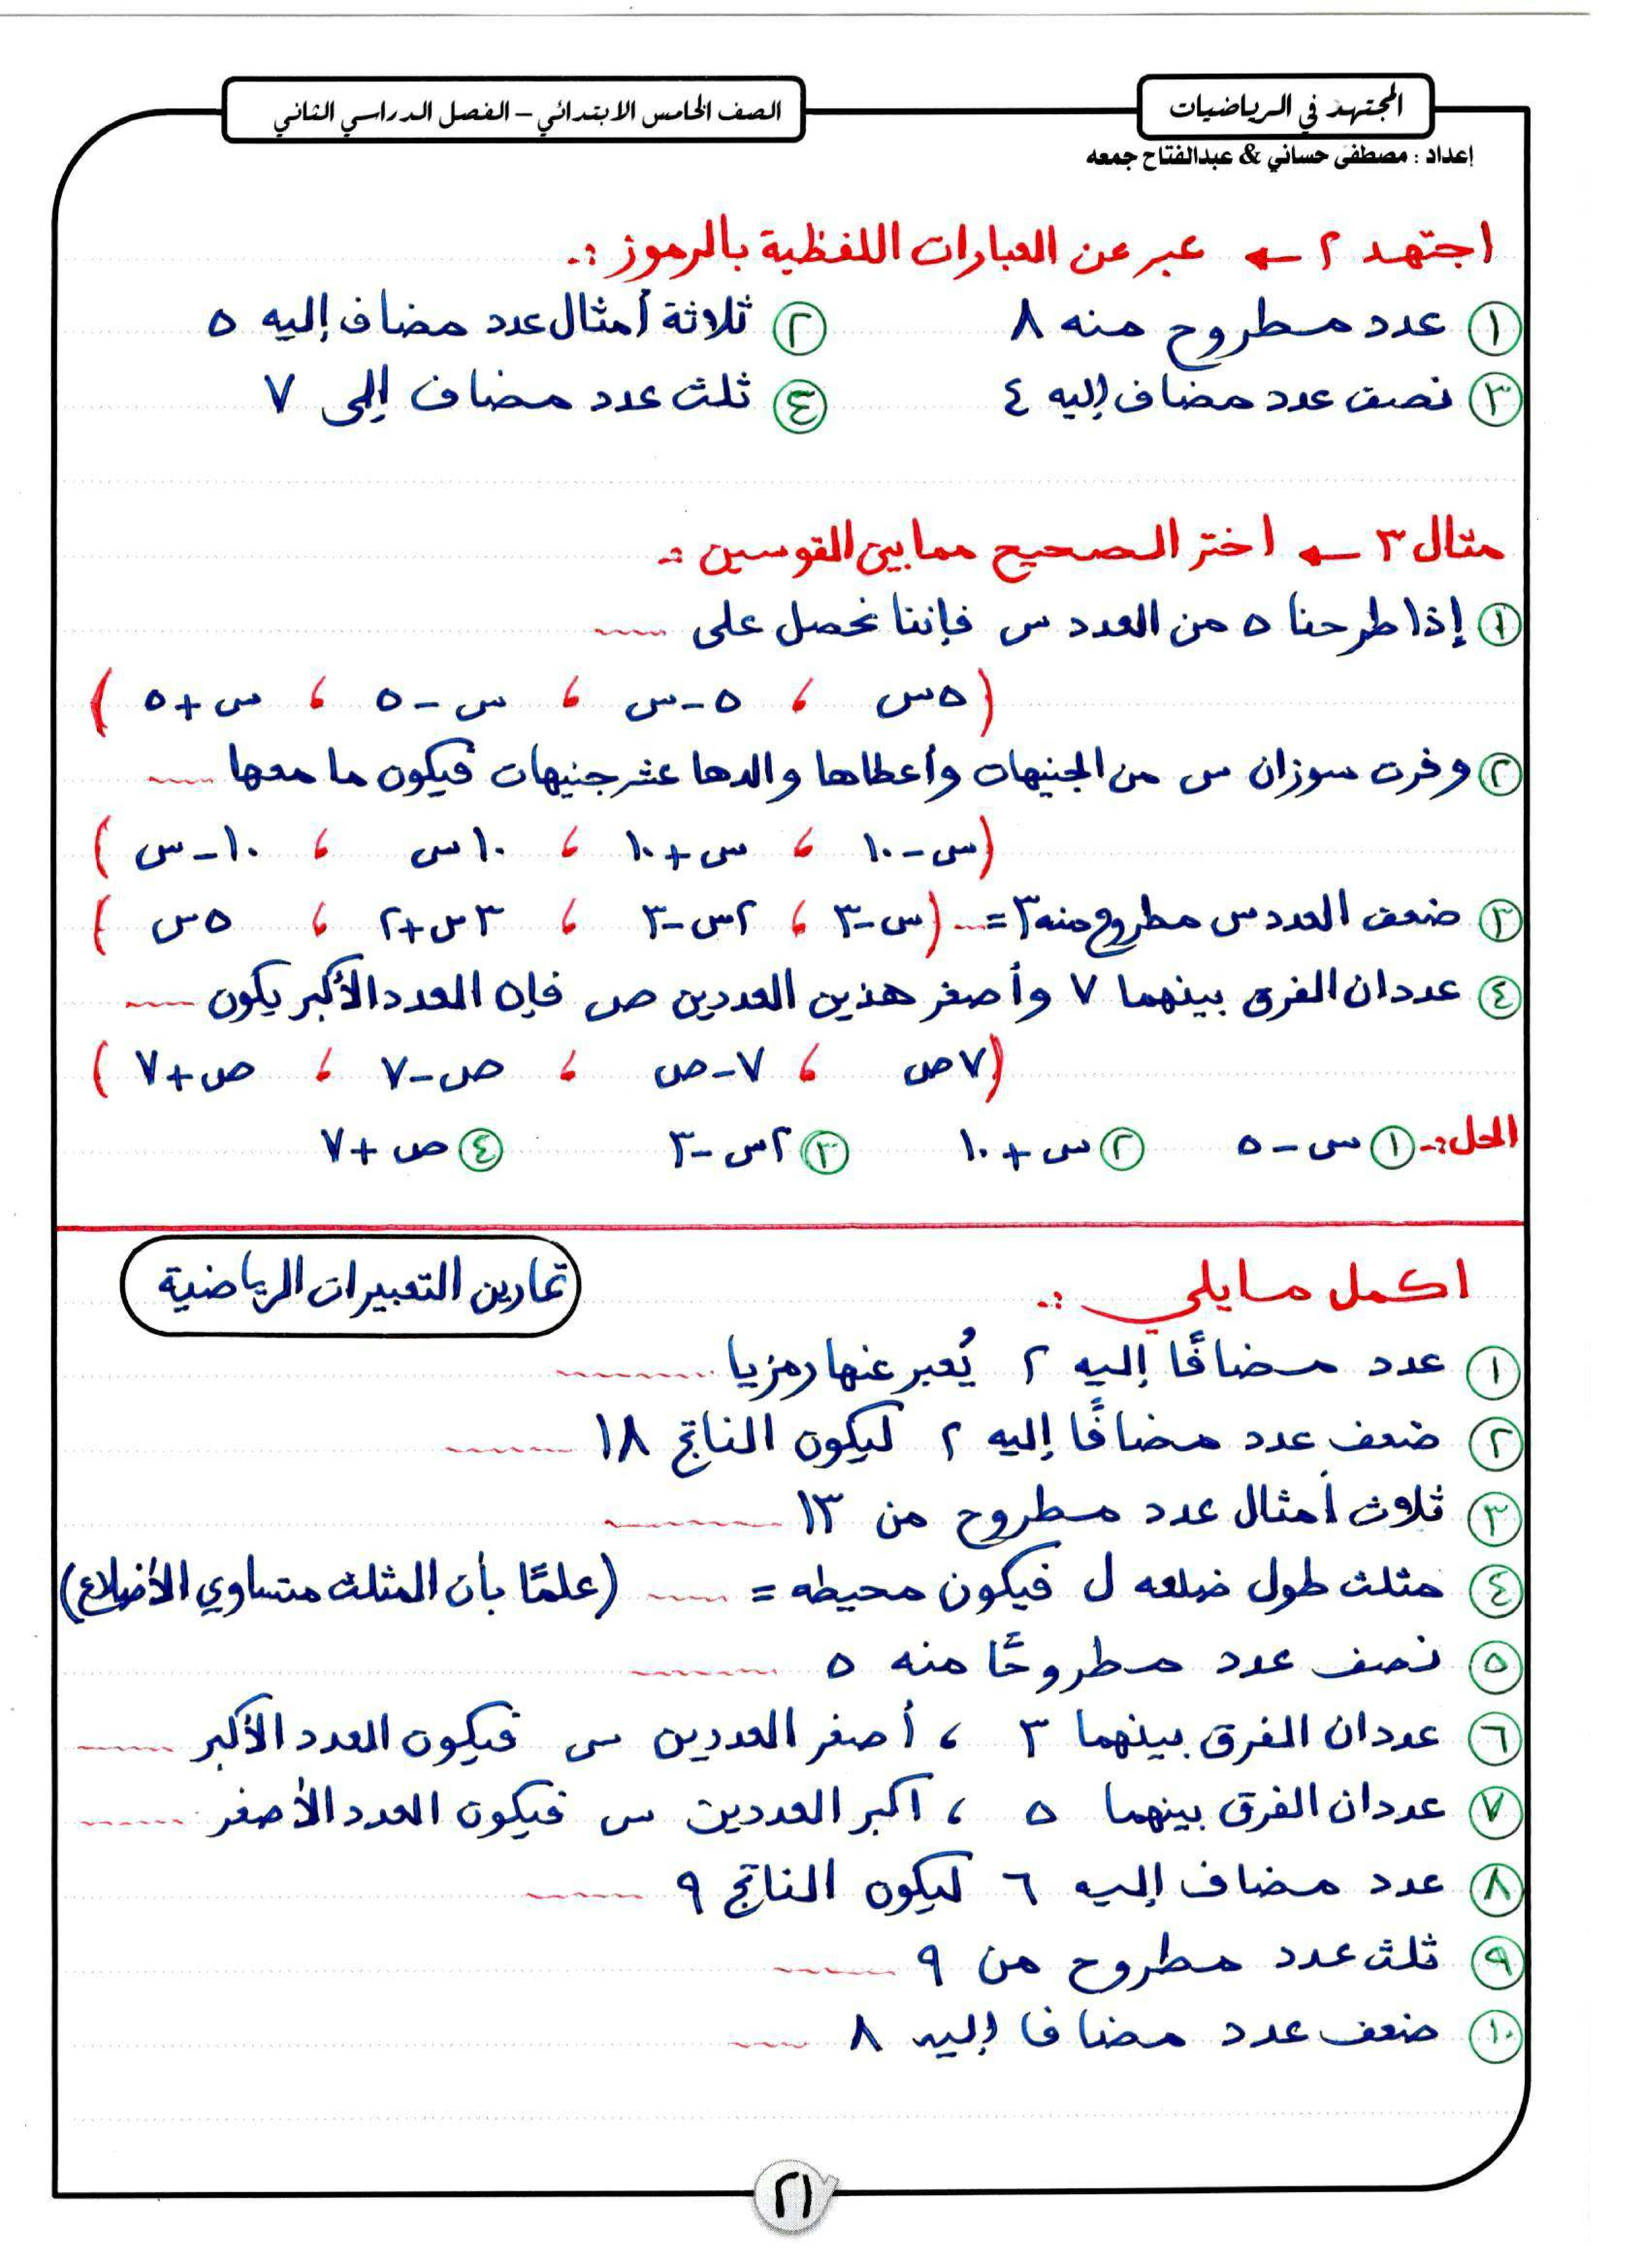 المجتهد في الرياضيات
الصف الخامس الابتدائي – الفصل الدراسي الثاني
إعداد : مصطفى حساني & عبدالفتاح جمعه
اجتهد ٢ ← عبر عن العبارات اللفظية بالرموز :-
١ عدد مطروح منه ٨ ٢ ثلاثة أمثال عدد مضاف إليه ٥
٣ نصف عدد مضاف إليه ٤ ٤ ثلث عدد مضاف إلى ٧
مثال ٣ ← اختر الصحيح مما بين القوسين :-
١ إذا طرحنا ٥ من العدد س فإننا نحصل على ....
(٥س ، ٥-س ، س-٥ ، س+٥)
٢ وفرت سوزان س من الجنيهات وأعطاها والدها عشر جنيهات فيكون ما معها ....
(س-١٠ ، س+١٠ ، ١٠س ، ١٠-س)
٣ ضعف العدد س مطروح منه ٣ = .... (س-٣ ، ٢س-٣ ، ٣س+٢ ، ٥س)
٤ عددان الفرق بينهما ٧ وأصغر هذين العددين ص فإن العدد الأكبر يكون ....
(٧ص ، ٧-ص ، ص-٧ ، ص+٧)
الحل:- ١ س-٥ ٢ س+١٠ ٣ ٢س-٣ ٤ ص+٧
تمارين التعبيرات الرياضية
اكمل مايلي :-
١ عدد مضافًا إليه ٢ يُعبر عنها رمزيا ........
٢ ضعف عدد مضافًا إليه ٢ ليكون الناتج ١٨ ........
٣ ثلاث أمثال عدد مطروح من ١٣ ........
٤ مثلث طول ضلعه ل فيكون محيطه = .... (علمًا بأن المثلث متساوي الأضلاع)
٥ نصف عدد مطروحًا منه ٥ ........
٦ عددان الفرق بينهما ٣ ، أصغر العددين س فيكون العدد الأكبر ......
٧ عددان الفرق بينهما ٥ ، اكبر العددين س فيكون العدد الأصغر ......
٨ عدد مضاف إليه ٦ ليكون الناتج ٩ ......
٩ ثلث عدد مطروح من ٩ ......
١٠ ضعف عدد مضافا إليه ٨ ....
٢١